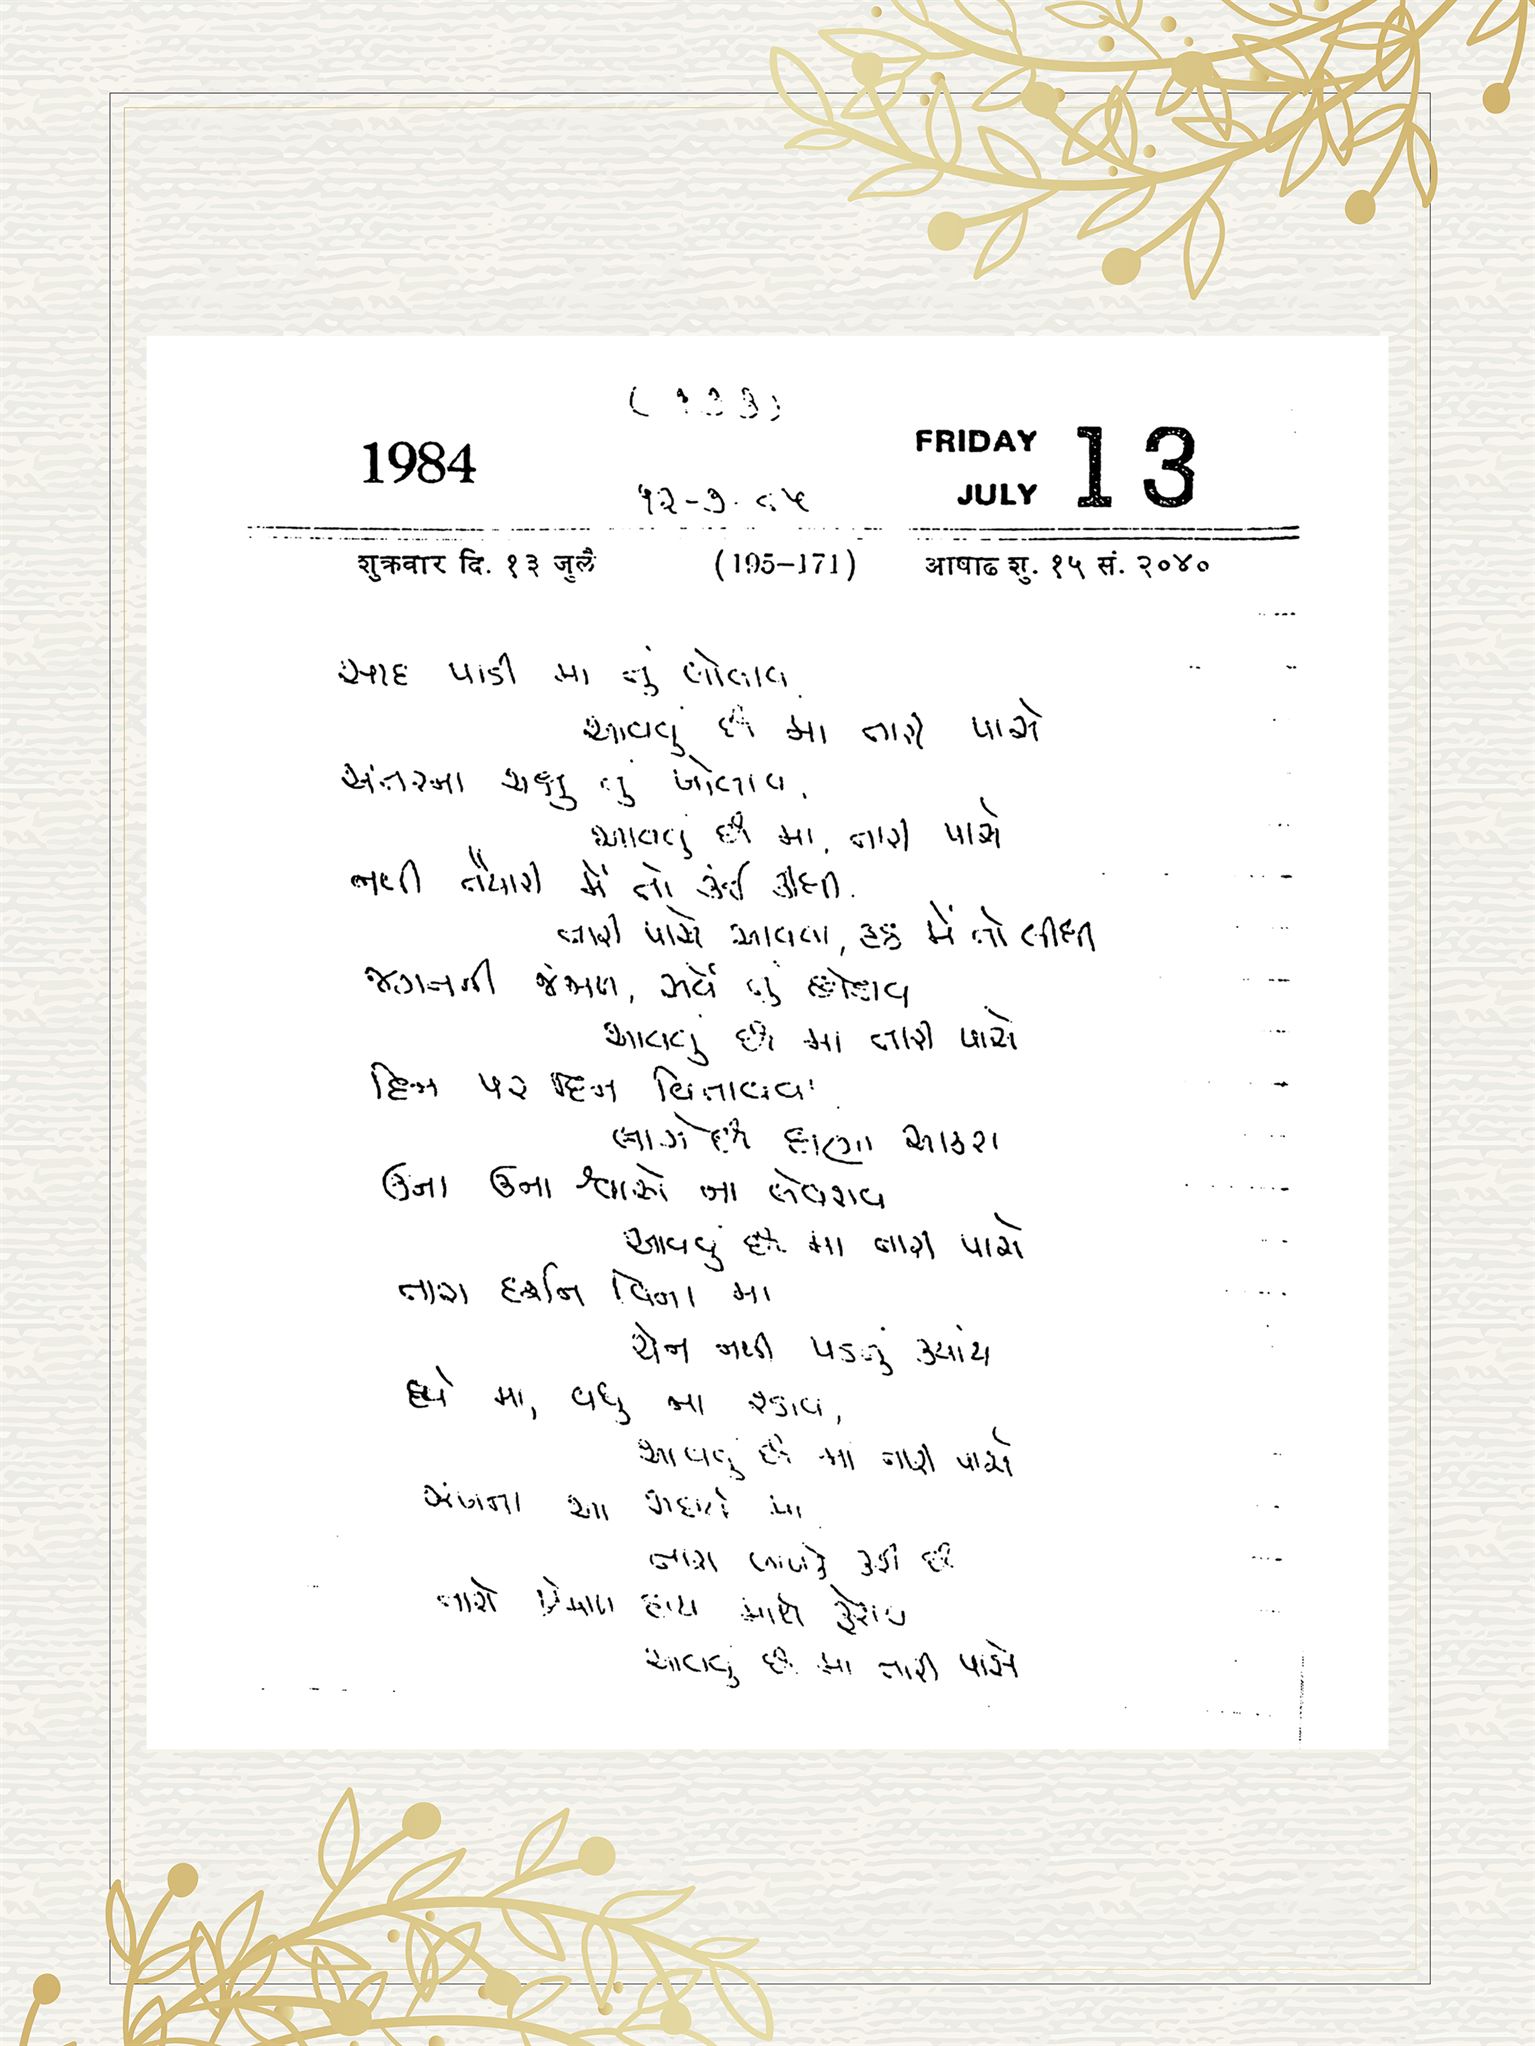 (૧૩૩)
1984
FRIDAY 13
JULY
૧૨-૭-૮૫
शुक्रवार दि. १३ जुलै (195–171) आषाढ शु. १५ सं. २०४०
સાદ પાડી મા તું બોલાવ
આવવું છે મા તારી પાસે
અંતરના ચક્ષુ તું ખોલાવ,
આવવું છે મા, તારી પાસે
નથી તૈયારી મેં તો કંઈ કીધી.
તારી પાસે આવવા, હઠ મેં તો લીધી
જગતની જંજાળ, સર્વે તું છોડાવ
આવવું છે મા તારી પાસે
દિન પર દિન વિતાવવા
લાગે છે ઘણા આકરા
ઉના ઉના શ્વાસો ના લેવરાવ
આવવું છે મા તારી પાસે
તારા દર્શન વિના મા
ચેન નથી પડતું ક્યાંય
હવે મા, વધુ ના રડાવ,
આવવું છે મા તારી પાસે
જગના આ મા
તારા બાળકે કરી છે
તારો પ્રેમાળ હાથ માથે ફેરાવ
આવવું છે મા તારી પાસે